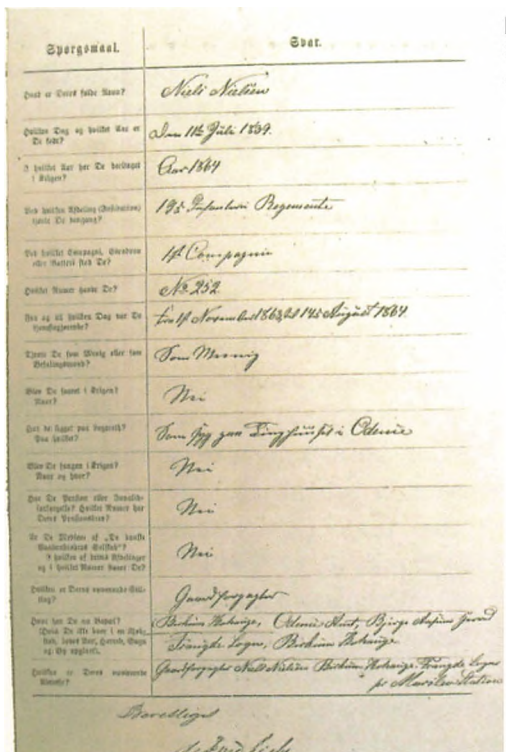 Spørgsmaal. Svar.
Hvad er Deres fulde Navn? Niels Nielsen
Hvilken Dag og hvilket Aar er De født? Den 11te Juli 1839.
I hvilket Aar har De deeltaget i Krigen? Aar 1864
Ved hvilken Afdeling (Institution) tjente De dengang? 19de Infanteri Regemente
Ved hvilket Compagni, Eskadron eller Batteri stod De? 1st Compagnie
Hvilket Numer havde De? No 252
Fra og til hvilken Dag var De tjenstgjørende? Fra 1st November 1863 til 14de August 1864.
Tjente De som Menig eller som Befalingsmand? Som Mennig
Blev De saaret i Krigen?
Naar? Nei
Har De ligget paa Lazareth?
Paa hvilket? Som Syg paa Tinghuuset i Odense
Blev De fangen i Krigen?
Naar og hvor? Nei
Har De Pension eller Invalide-
Hvilket Numer har Deres Nei
Er De Medlem af „De danske Vaabenbrødres Selskab“?
I hvilken af dennes Afdelinger og i hvilket Numer haver De? Nei
Hvilken er Deres nuværende Stilling? Gaardforpagter
Hvor har De nu Bopæl? Birkum Odense Amt, Bjerge Herred
Sogn, Birkum
Hvilken er Deres nuværende Adresse? Gaardforpagter Niels Nielsen Birkum Sogn
pr Marslev Station